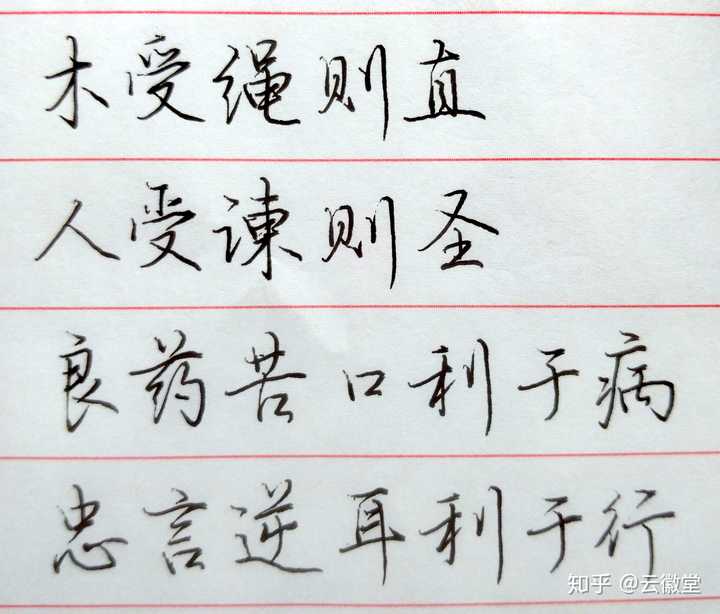 木受绳则直
人受谏则圣
良药苦口利于病
忠言逆耳利于行
知乎 @云徽堂